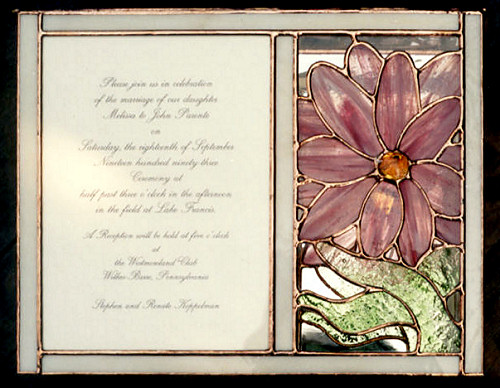 Please join us in celebration
of the marriage of our daughter
Melissa to John Parents
on
Saturday, the eighteenth of September
Nineteen hundred ninety three
Ceremony at
half past three o'clock in the afternoon
in the field at Lake Francis
A Reception will be held at five o'clock
at
the Westmoreland Club
Wilkes-Barre, Pennsylvania
Stephen and Renata Koppelman